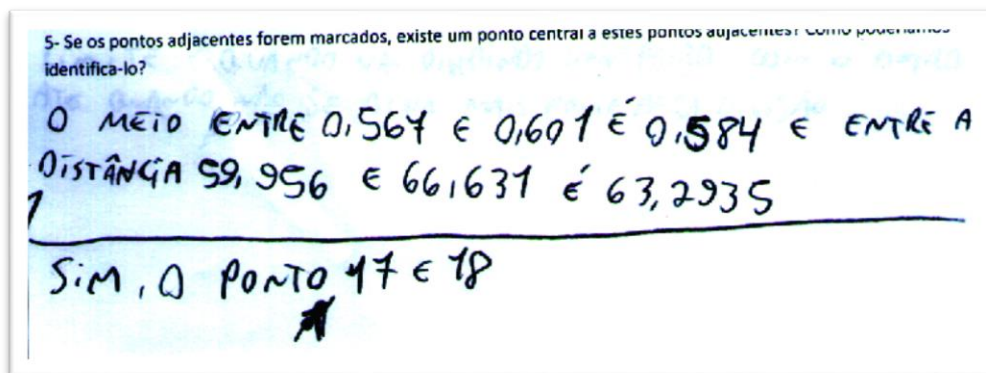 5- Se os pontos adjacentes forem marcados, existe um ponto central a estes pontos adjacentes? Como poderíamos
identifica-lo?
O MEIO ENTRE 0,567 E 0,601 É 0,584 E ENTRE A
DISTÂNCIA 59,956 E 66,631 É 63,2935
SIM, O PONTO 17 E 18